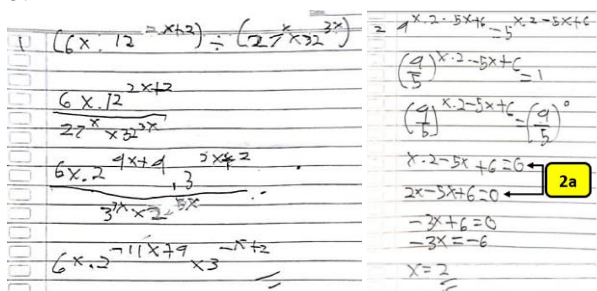 1 (6x . 12^2x+2) ÷ (27^x × 32^3x)
6x.12^2x+2
27^x × 32^3x
6x.2^4x+4 . 3^2x+2
3^3x × 2^5x
6x.2^-11x+4 × 3^-x+2
2 9^x.2-5x+6 = 5^x.2-5x+6
(9/5)^x.2-5x+6 = 1
(9/5)^x.2-5x+6 = (9/5)^0
x.2-5x+6=0
2a
2x-5x+6=0
-3x+6=0
-3x=-6
x=2